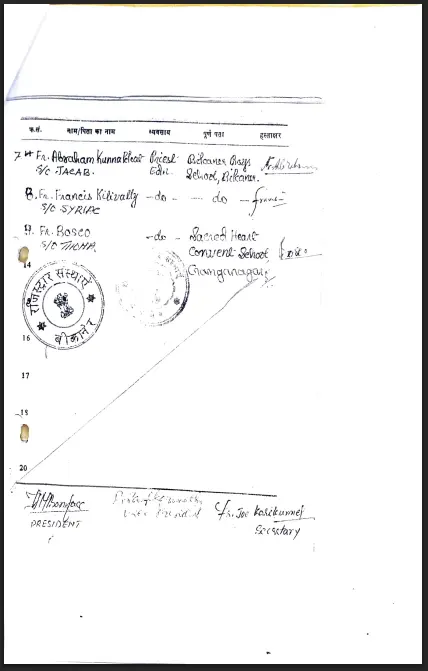 क्र.सं. नाम/पिता का नाम व्यवसाय पूर्ण पता हस्ताक्षर
7 Fr. Abraham Kunnakhat Priest Bikaner Boys
S/o JACAB. Edn. School, Bikaner.
8. Fr. Francis Kilivally -do- - do -
S/o SYRIAC
9. Fr. Bosco -do- Sacred Heart
S/o THOMA Convent School
14 Ganganagar
रजिस्ट्रार संस्थायें
बीकानेर
16
17
18
20
PRESIDENT
Vice President
Fr. Joe
Secretary